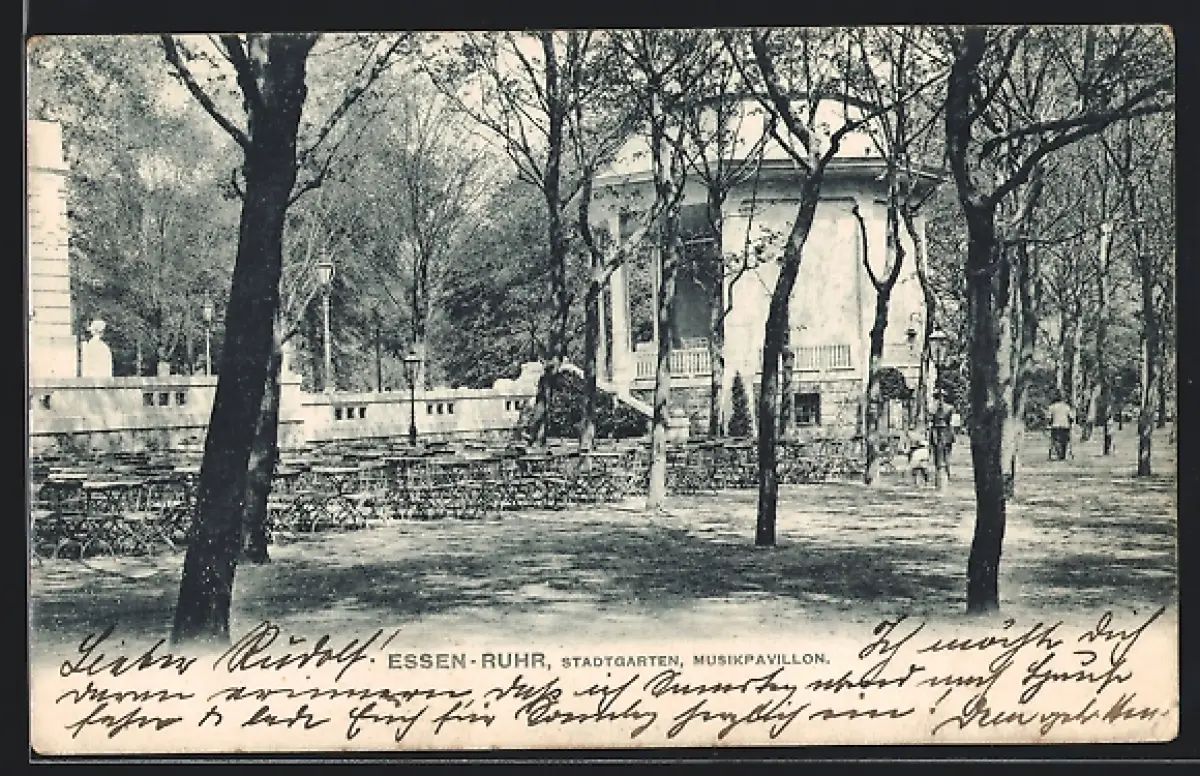 Lieber Rudolf! ESSEN-RUHR, STADTGARTEN, MUSIKPAVILLON. Ich möcht Dich
daran erinnern daß ich Samstag abend nach Hause
fahre & lade Euch für Sonntag herzlich ein!